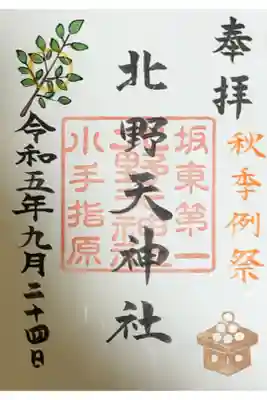 奉拝
秋季例祭
北野天神社
坂東第一
小手指原
令和五年九月二十四日